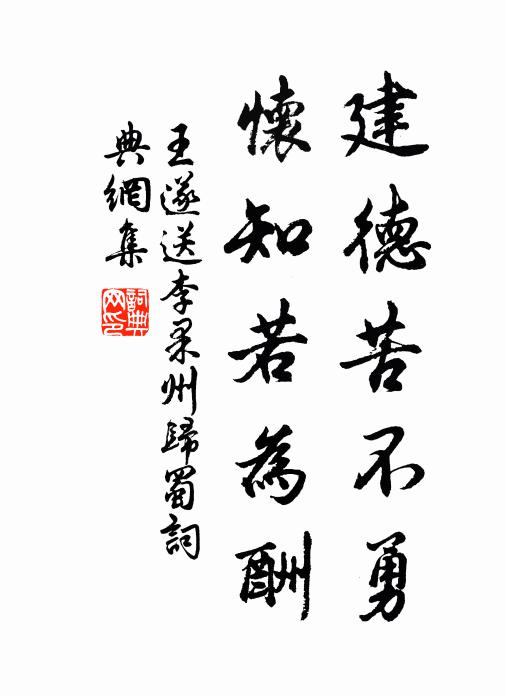 建德苦不勇
懷知若為酬
王遂送李果州歸蜀詞
典網集
詞典網印